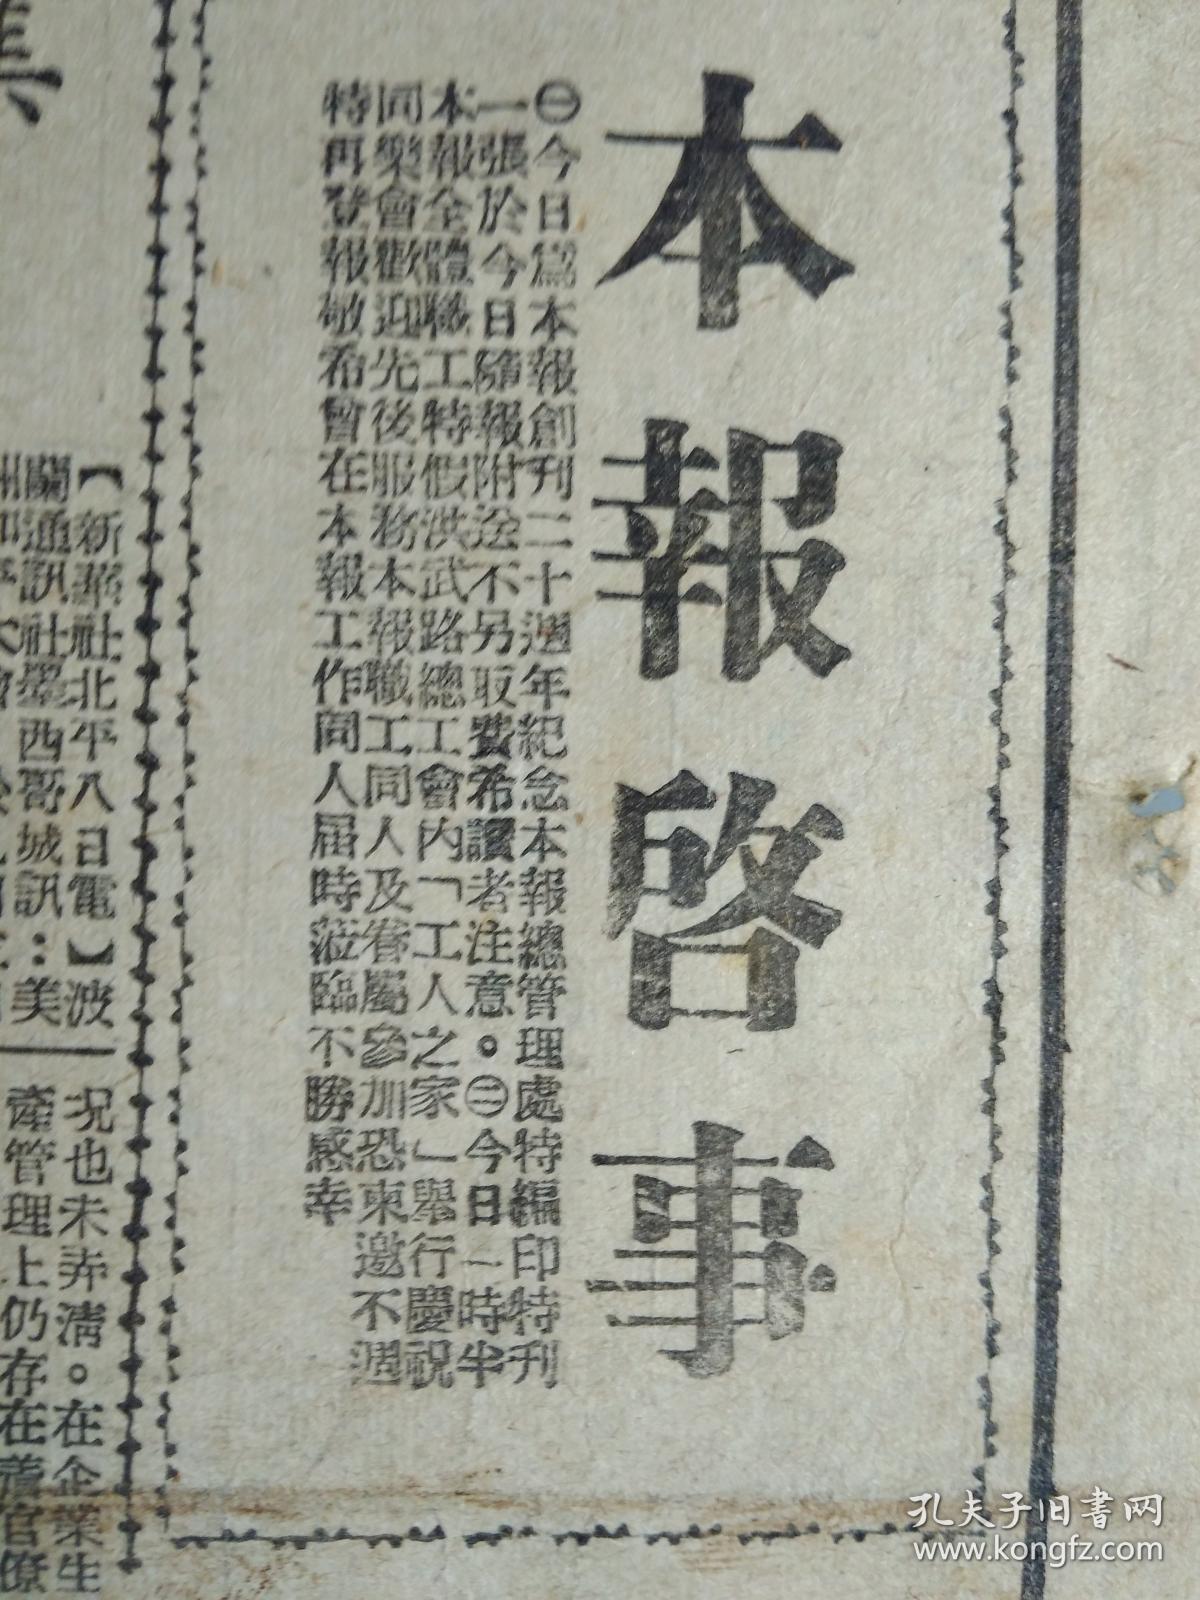 本報啓事
㊀今日爲本報創刊二十週年紀念本報總管理處特編印特刊
一張於今日隨報附送不另取費希讀者注意。㊁今日一時半
本報全體職工特假洪武路總工會內「工人之家」舉行慶祝
同樂會歡迎先後服務本報職工同人及眷屬參加恐柬邀不週
特再登報敬希曾在本報工作同人届時蒞臨不勝感幸
【新華社北平八日電】波
蘭通訊社墨西哥城訊：美
況也未弄清。在企業生
產管理上仍存在舊官僚
孔夫子旧书网
www.kongfz.com